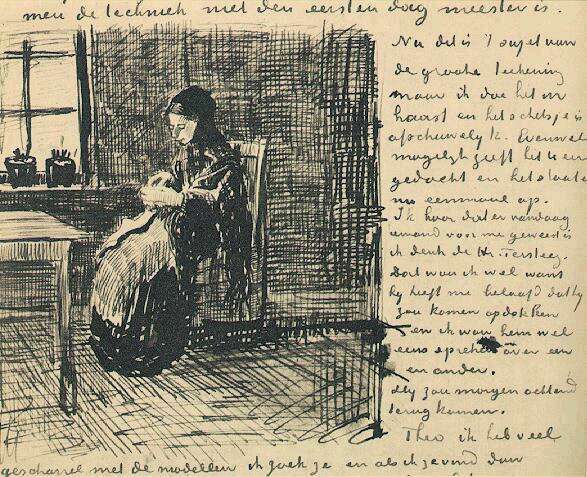 men de techniek niet den eersten dag meester is.
Nu dit is 't sujet van
de groote teekening
maar ik doe het in
haast en het schetsje is
afschuwelijk. Evenwel
mogelijk geeft het U een
gedacht en het slaat
nu eenmaal op.
Ik hoor dat er vandaag
iemand voor me geweest is
ik denk de Hr. Tersteeg.
Dat wou ik wel want
hij heeft me beloofd dat hij
zou komen opdokken
en ik wou hem wel
eens spreken over een
en ander.
Hij zou morgen ochtend
terug komen.
Theo ik heb veel
gescharrel met de modellen ik zoek ze en als ik ze vind dan